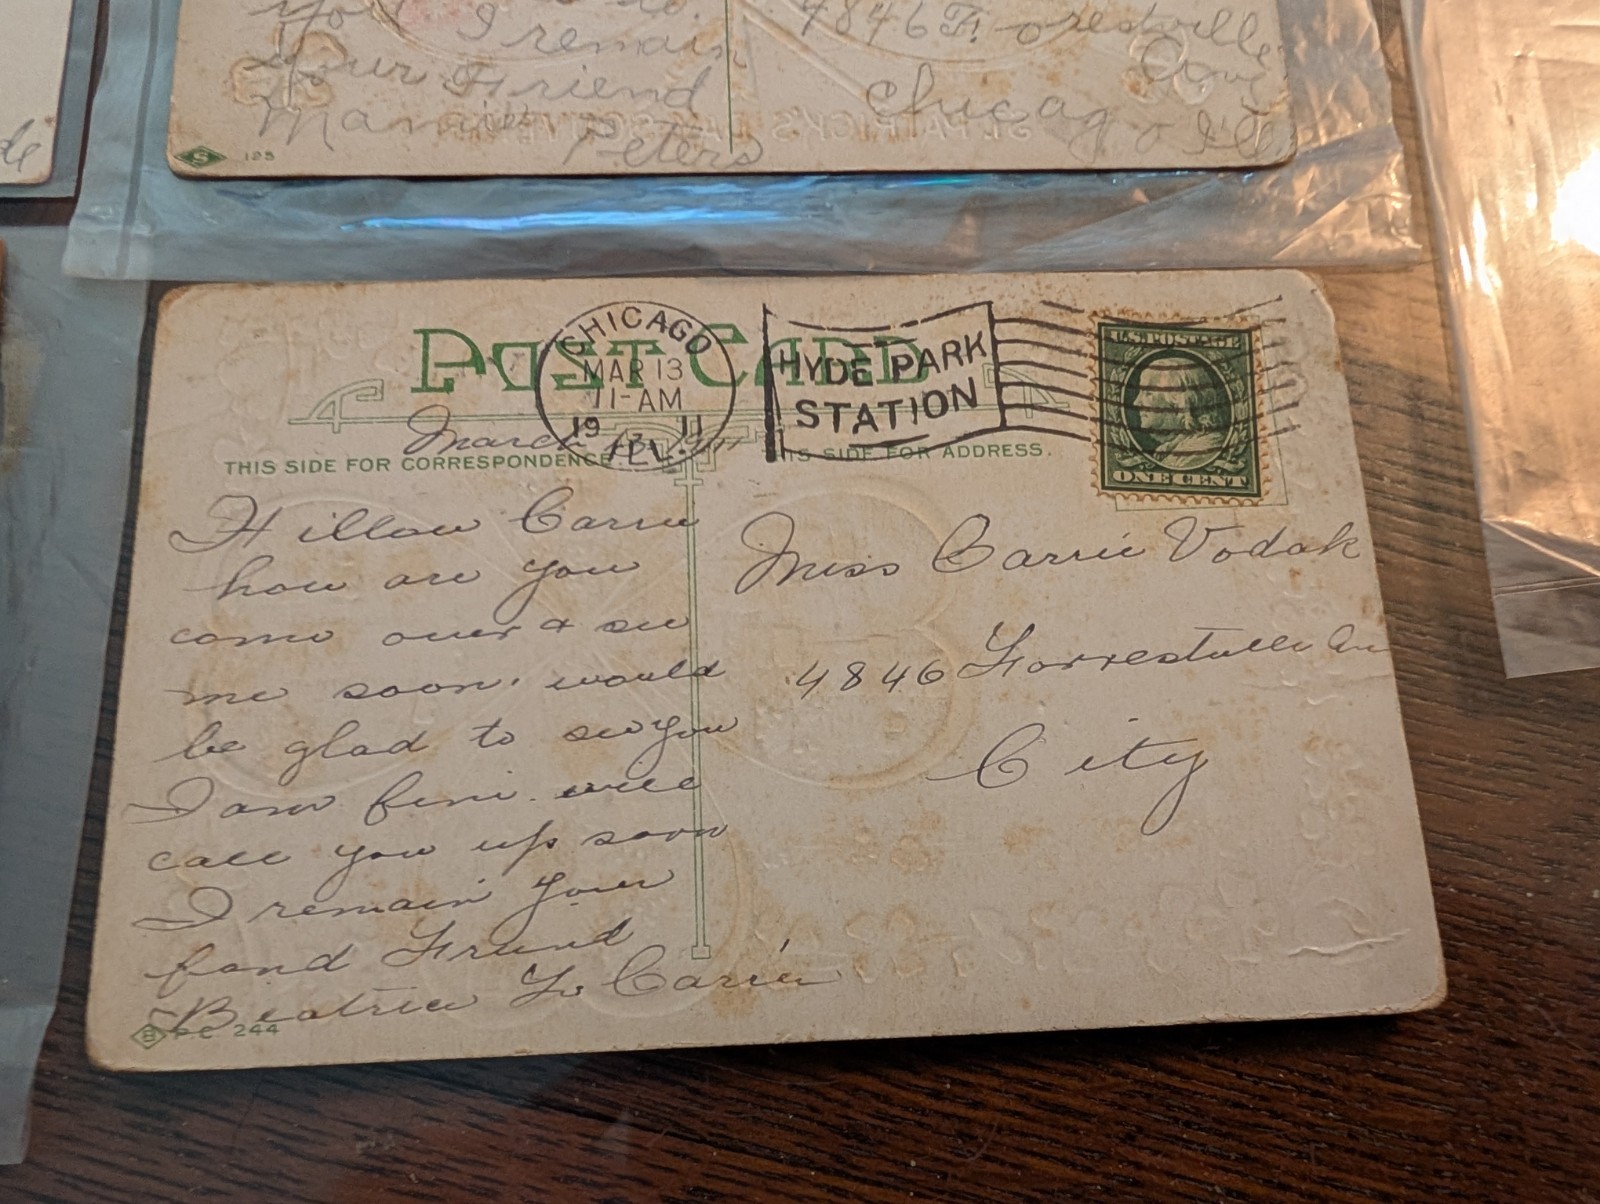 you
I remain
your Friend
Mamie
Peters
4846 Forestville
Ave
Chicago Ill
S 125
ST. PATRICK'S DAY
de
POST CARD
CHICAGO
MAR 13
11-AM
1911
ILL.
HYDE PARK
STATION
U.S. POSTAGE
ONE CENT
March 13, 1911
THIS SIDE FOR CORRESPONDENCE.
THIS SIDE FOR ADDRESS.
Hillow Carrie
how are you
come over & see
me soon. would
be glad to see you
I am fine. will
call you up soon
I remain your
fond Friend
Beatrice To Carrie
S P.C. 244
Miss Carrie Vodak
4846 Forrestville Av
City